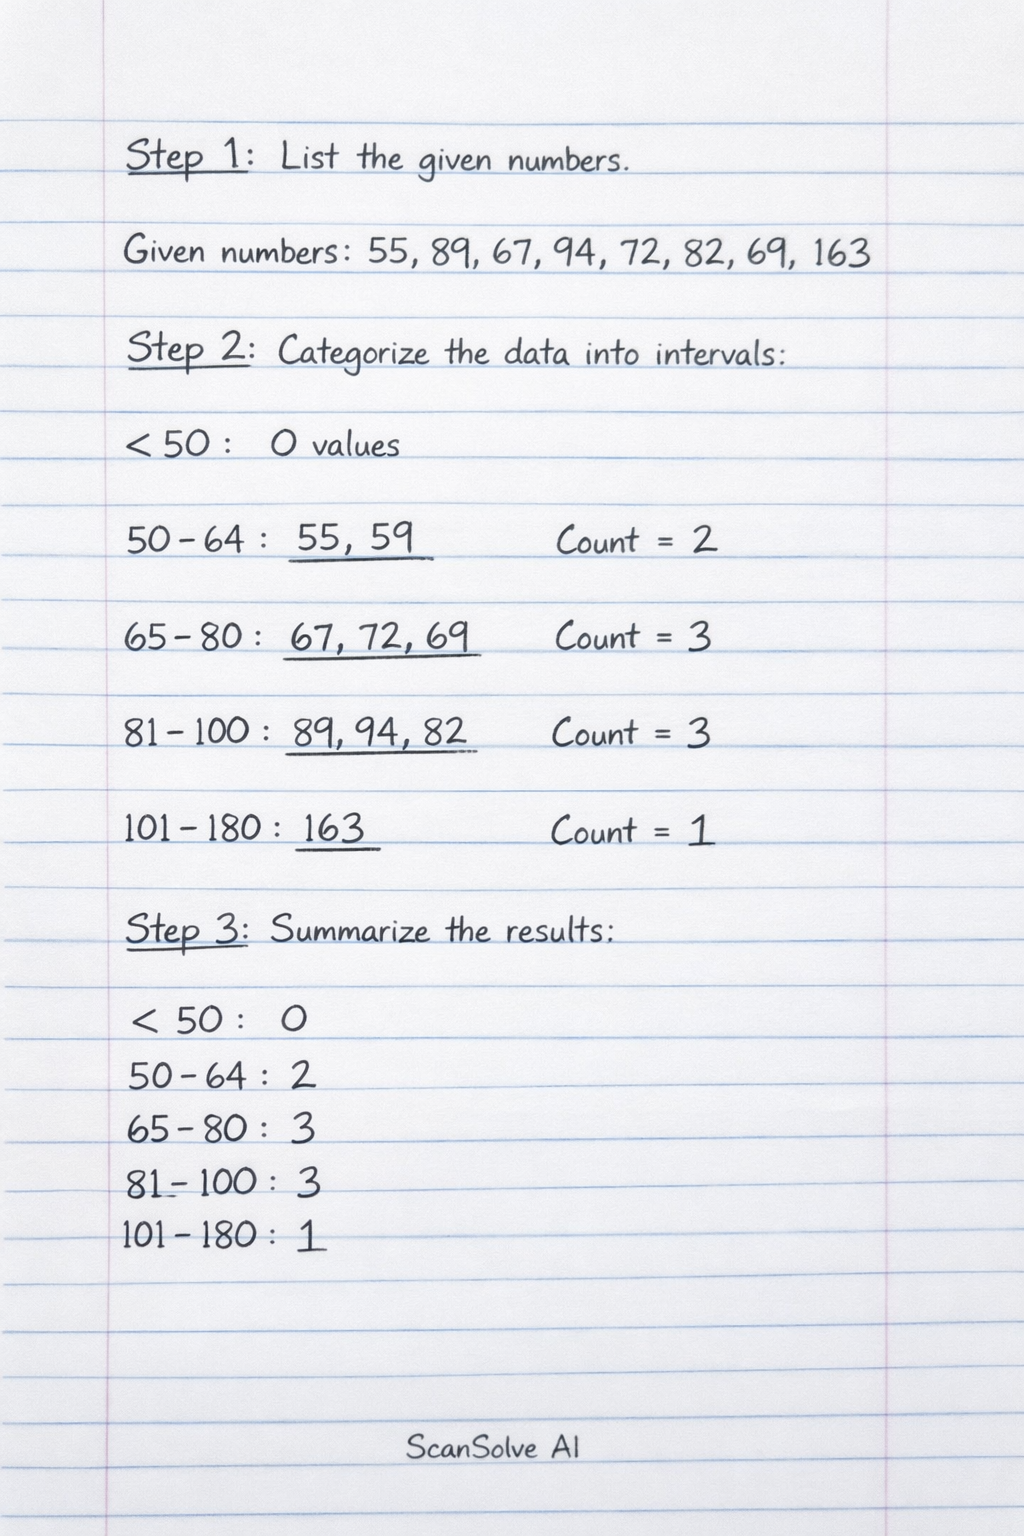 Step 1: List the given numbers.
Given numbers: 55, 89, 67, 94, 72, 82, 69, 163
Step 2: Categorize the data into intervals:
< 50 : 0 values
50 - 64 : 55, 59 Count = 2
65 - 80 : 67, 72, 69 Count = 3
81 - 100 : 89, 94, 82 Count = 3
101 - 180 : 163 Count = 1
Step 3: Summarize the results:
< 50 : 0
50 - 64 : 2
65 - 80 : 3
81 - 100 : 3
101 - 180 : 1
ScanSolve AI